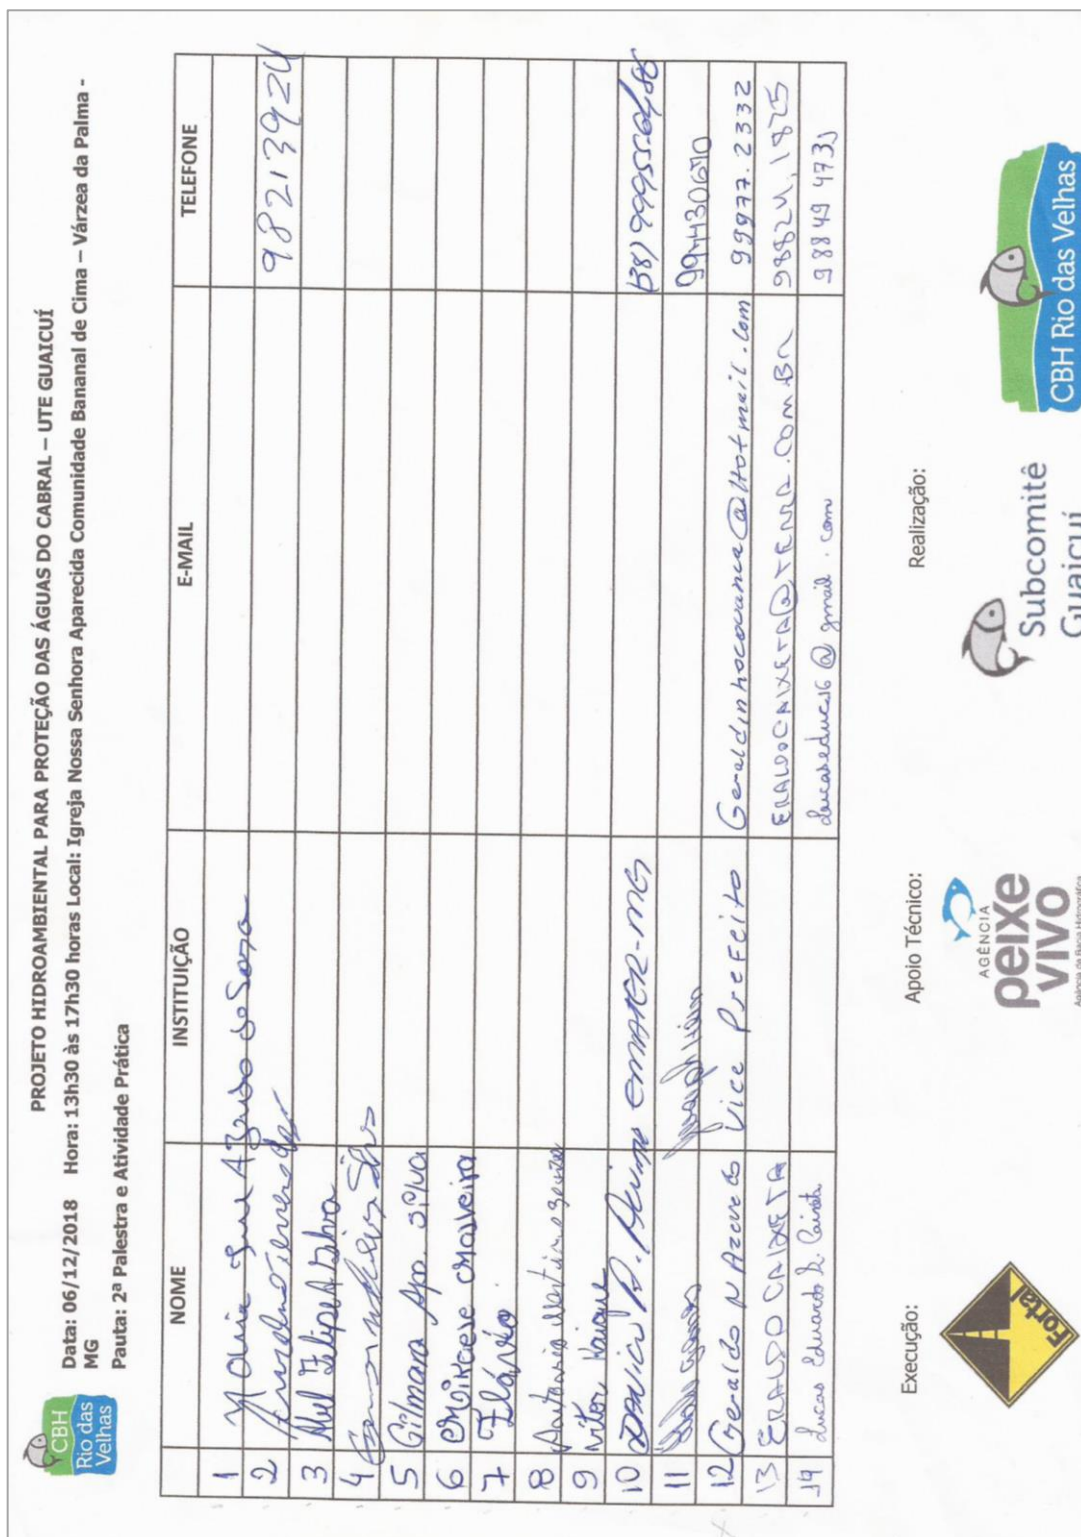 CBH
Rio das
Velhas
PROJETO HIDROAMBIENTAL PARA PROTEÇÃO DAS ÁGUAS DO CABRAL – UTE GUAICUÍ
Data: 06/12/2018 Hora: 13h30 às 17h30 horas Local: Igreja Nossa Senhora Aparecida Comunidade Bananal de Cima – Várzea da Palma -
MG
Pauta: 2ª Palestra e Atividade Prática
NOME INSTITUIÇÃO E-MAIL TELEFONE
1 Maria
2 982139924
3 Abel Felipe A Silva
4 Silva
5 Gilmara Apa. silva
6 Moreira
7 Flávio
8 Antonio Martins souza
9 Vitor Kaique
10 EMATER-MG (38)
11 994430670
12 Geraldo N Azevedo Vice Prefeito Geraldinhocovanca@Hotmail.com 99977.2332
13 ERALDO CAIXETA ERALDOCAIXETA@TERRA.COM.BR 98824,1825
14 Lucas Eduardo R. Caixeta @gmail.com 98849 4733
Execução: Apoio Técnico: Realização:
Fortal
AGÊNCIA
peixe
vivo
Agência de Bacia Hidrográfica
Subcomitê
Guaicuí
CBH Rio das Velhas